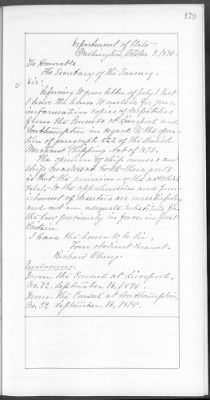 179
Department of State
Washington, October 3, 1895.
The Honorable
The Secretary of the Treasury.
Sir:
Referring to your letter of July 1 last
I have the honor to enclose for your
information copies of despatches
from the Consuls at Liverpool and
Southampton in regard to the
of paragraph 222 of the British
Merchant Shipping Act of
The opinion of ship owners and
ship masters at these ports
is that the provisions of the
relate to the apprehension and
ishment of deserters are
and not an adequate substitute for
the law previously in force in Great
Britain.
I have the honor to be, Sir,
Your obedient servant,
Richard Olney.
Enclosures:
From the Consul at Liverpool,
No. 72, September 16, 1895.
From the Consul at Southampton,
No. 32, September 16, 1895.